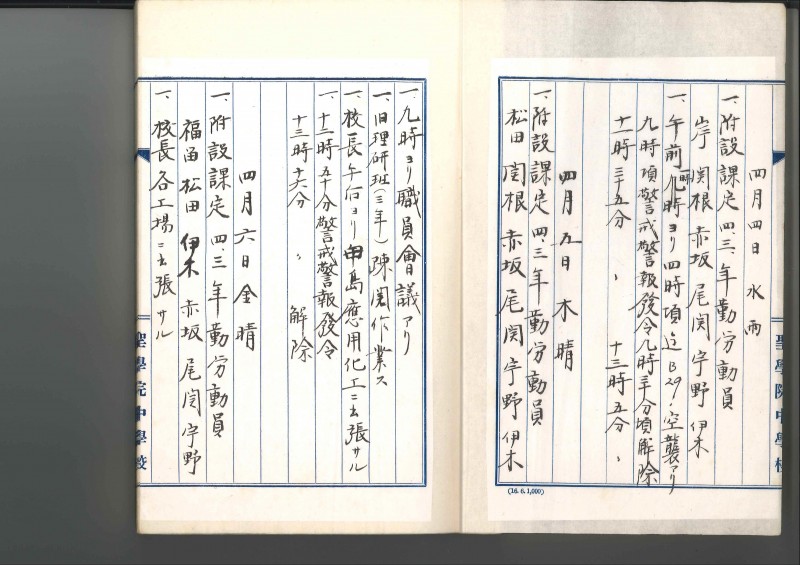 四月四日 水 雨
一、附設課定 四、三、年勤労動員
岸 関根 赤坂 尾関 宇野 伊木
一、午前 時ヨリ四時項迄B29ノ空襲アリ
九時項警戒警報發令九時三十分頃解除
十一時三十五分 〃 十三時五分 〃
四月五日 木 晴
一、附設課定 四、三年勤労動員
松田 関根 赤坂 尾関 宇野 伊木
聖學院中學校
(16. 6. 1,000)
一、九時ヨリ職員會議アリ
一、旧理研班(三年)疎開作業ス
一、校長午后ヨリ中島應用化工ニ出張サル
一、十二時五十分警戒警報發令
十三時十六分 〃 解除
四月六日 金 晴
一、附設課定 四、三年勤労動員
福留 松田 伊木 赤坂 尾関 宇野
一、校長各工場ニ出張サル
聖學院中學校